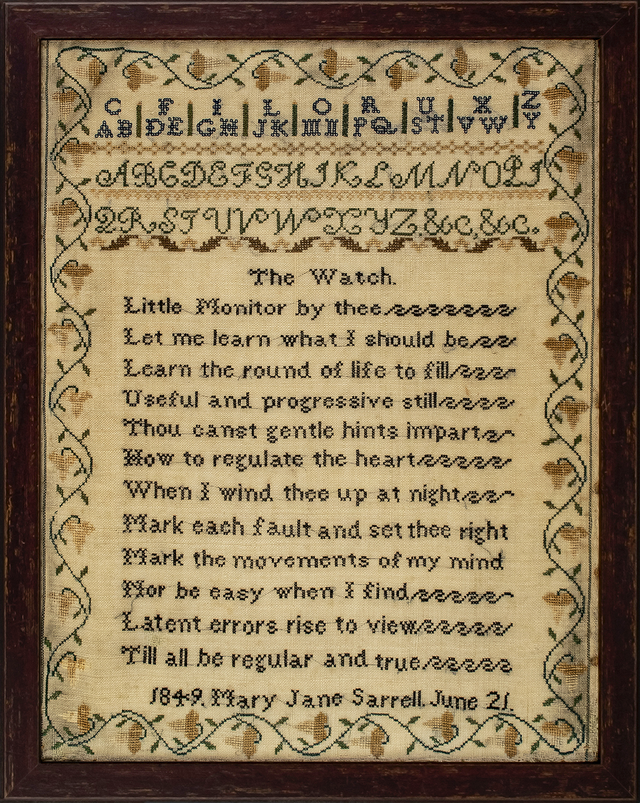 C F I L O R U X Z
AB DE GH JK MN PQ ST VW Y
ABCDEFGHIKLMNOP
QRSTUVWXYZ.&c,&c.
The Watch.
Little Monitor by thee
Let me learn what I should be
Learn the round of life to fill
Useful and progressive still
Thou canst gentle hints impart
How to regulate the heart
When I wind thee up at night
Mark each fault and set thee right
Mark the movements of my mind
Nor be easy when I find
Latent errors rise to view
Till all be regular and true
1849. Mary Jane Sarrell. June 21.